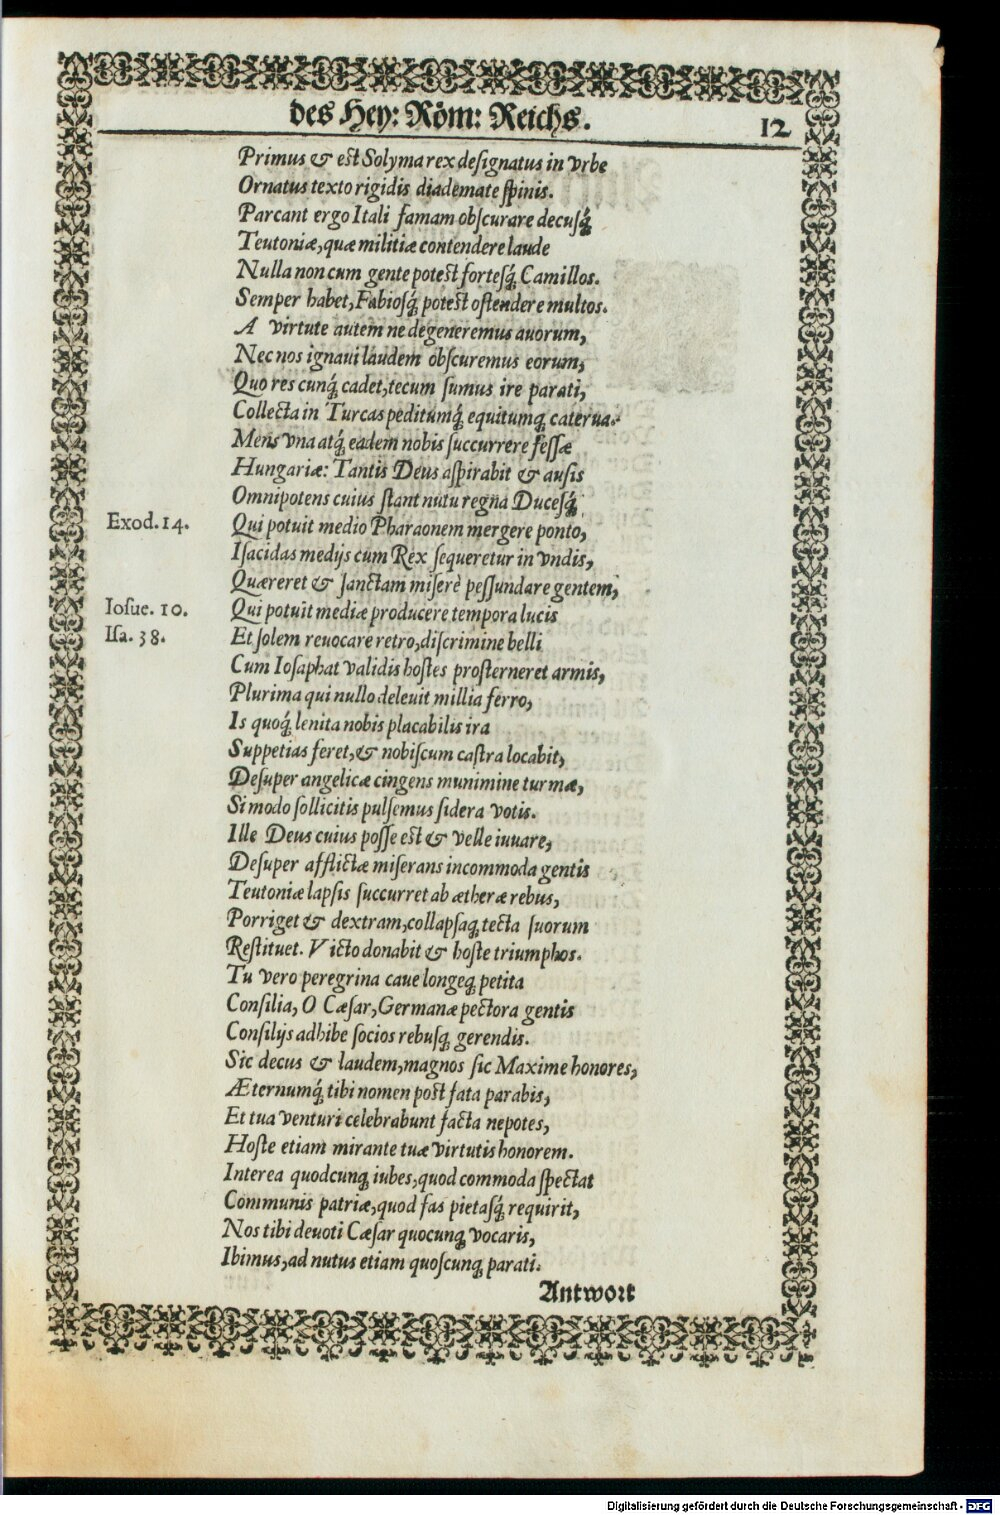 des Hey: Röm: Reichs.
12
Primus & est Solyma rex designatus in vrbe
Ornatus texto rigidis diademate spinis.
Parcant ergo Itali famam obscurare decusq́;
Teutoniæ, quæ militiæ contendere laude
Nulla non cum gente potest fortesq́; Camillos.
Semper habet, Fabiosq́; potest ostendere multos.
A virtute autem ne degeneremus auorum,
Nec nos ignaui laudem obscuremus eorum,
Quo res cunq́; cadet, tecum sumus ire parati,
Collecta in Turcas peditumq́; equitumq; caterua.
Mens vna atq́; eadem nobis succurrere fessæ
Hungariæ: Tantis Deus aspirabit & ausis
Omnipotens cuius stant nutu regna Ducesq́;
Exod. 14. Qui potuit medio Pharaonem mergere ponto,
Isacidas medijs cum Rex sequeretur in vndis,
Quæreret & sanctam miserè pessundare gentem,
Iosue. 10. Qui potuit mediæ producere tempora lucis
Isa. 38. Et solem reuocare retro, discrimine belli
Cum Iosaphat validis hostes prosterneret armis,
Plurima qui nullo deleuit millia ferro,
Is quoq́; lenita nobis placabilis ira
Suppetias feret, & nobiscum castra locabit,
Desuper angelicæ cingens munimine turmæ,
Si modo sollicitis pulsemus sidera votis.
Ille Deus cuius posse est & velle iuuare,
Desuper afflictæ miserans incommoda gentis
Teutoniæ lapsis succurret ab æthera rebus,
Porriget & dextram, collapsaq; tecta suorum
Restituet. Victo donabit & hoste triumphos.
Tu vero peregrina caue longeq; petita
Consilia, O Cæsar, Germanæ pectora gentis
Consilijs adhibe socios rebusq; gerendis.
Sic decus & laudem, magnos sic Maxime honores,
Æternumq́; tibi nomen post fata parabis,
Et tua venturi celebrabunt facta nepotes,
Hoste etiam mirante tuæ virtutis honorem.
Interea quodcunq; iubes, quod commoda spectat
Communis patriæ, quod fas pietasq́; requirit,
Nos tibi deuoti Cæsar quocunq; vocaris,
Ibimus, ad nutus etiam quoscunq; parati.
Antwort
Digitalisierung gefördert durch die Deutsche Forschungsgemeinschaft - DFG